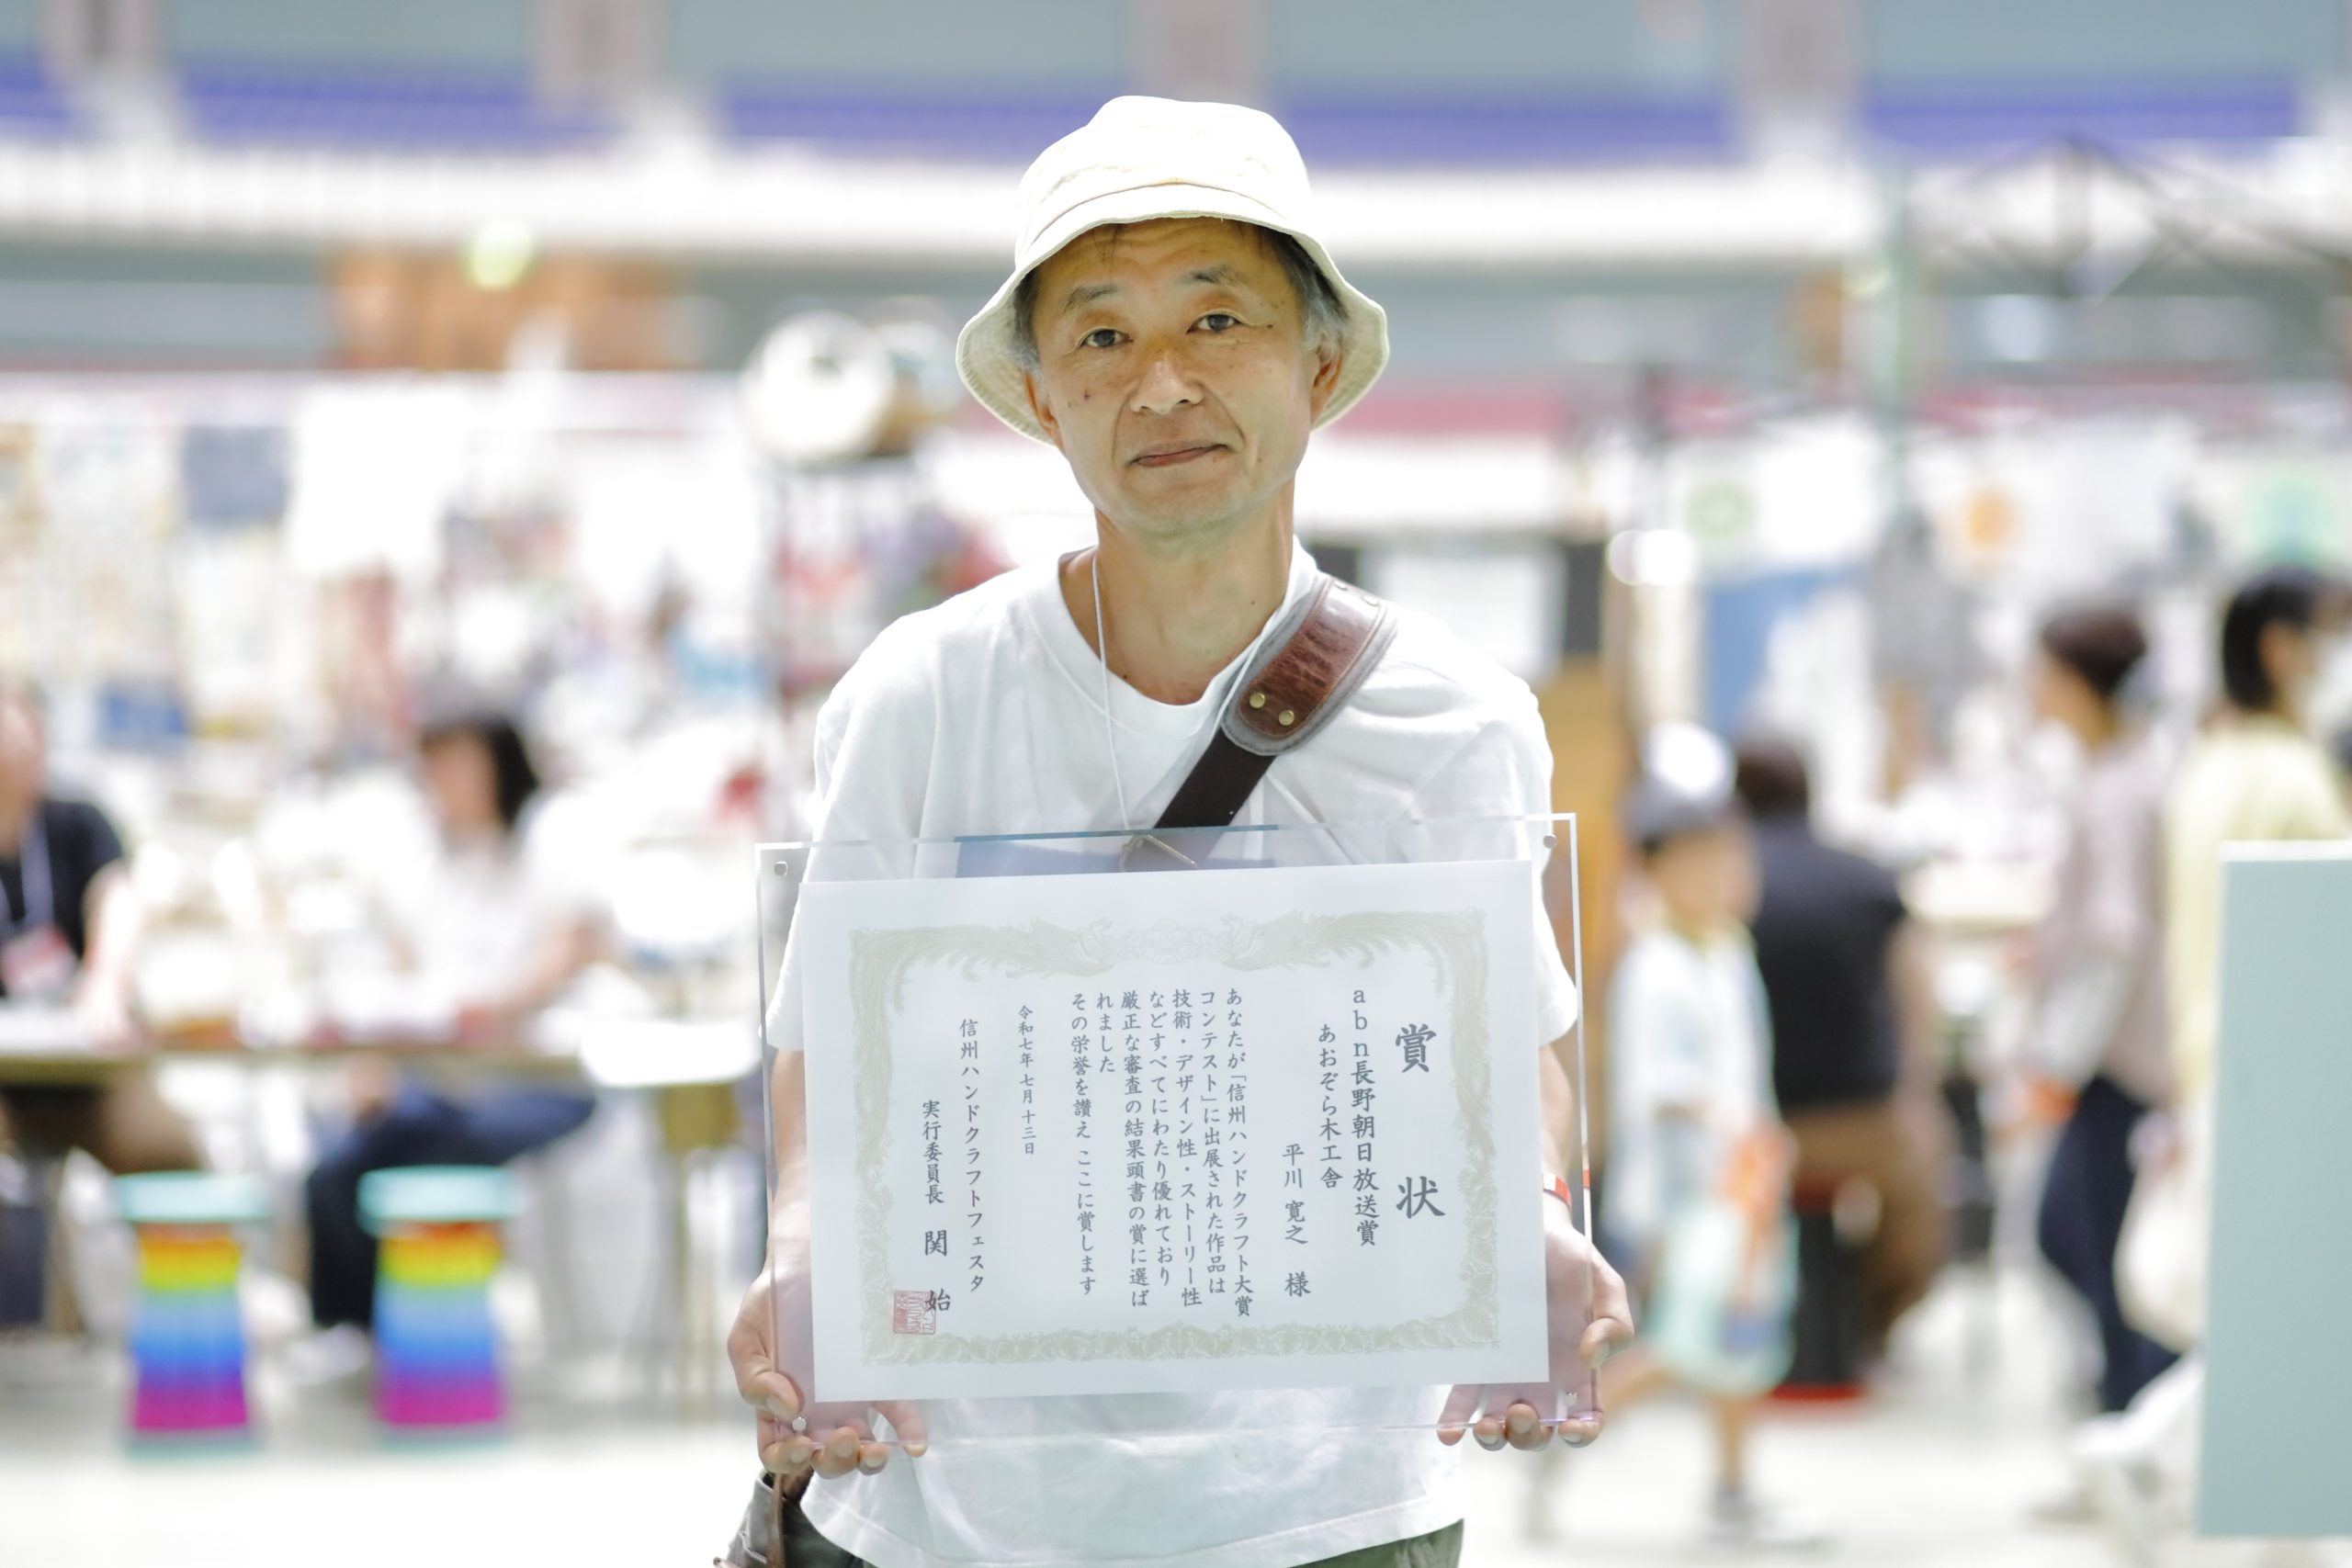 賞状
abn長野朝日放送賞
あおぞら木工舎
平川 寛之 様
あなたが「信州ハンドクラフト大賞
コンテスト」に出展された作品は
技術・デザイン性・ストーリー性
などすべてにわたり優れており
厳正な審査の結果頭書の賞に選ば
れました
その栄誉を讃え ここに賞します
令和七年七月十三日
信州ハンドクラフトフェスタ
実行委員長 関 始